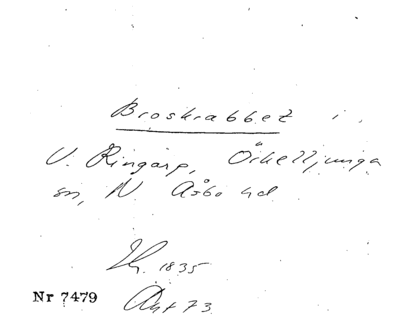 Broskrabbet i
V. Ringarp, Örkelljunga
sn, N. Åsbo hd
Th. 1835
Nr 7479
Akt 73